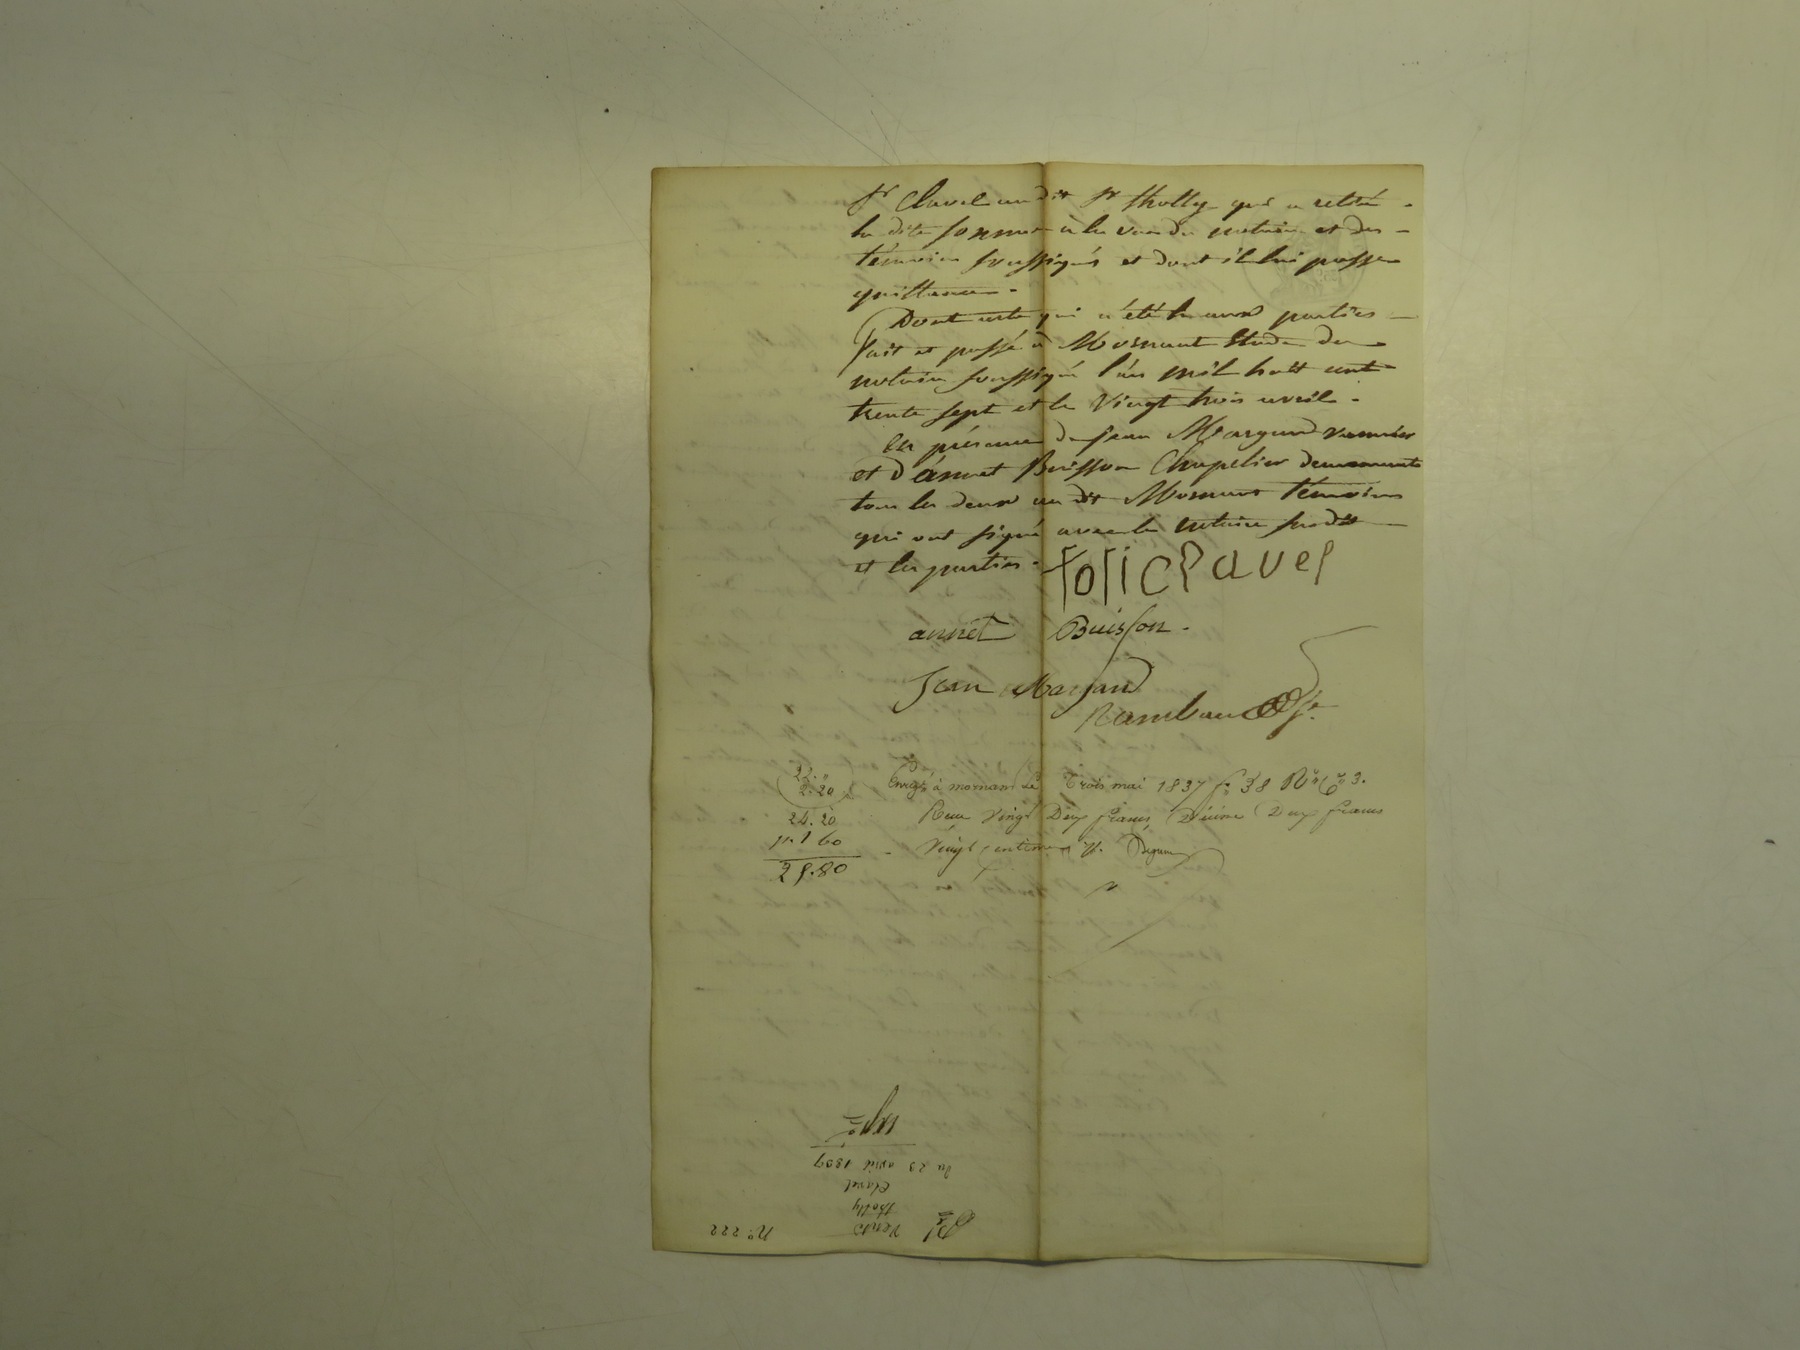 Sr Clavel au dit Sr Tholly qui a retiré
la dite somme à la vue du notaire et des
témoins soussignés et dont il lui passe
quittance.
Dont acte qui a été lu aux parties
fait et passé à Mornant Etude du
notaire soussigné l'an mil huit cent
trente sept et le vingt trois avril.
En présence de Jean Margand vannier
et d'annet Buisson Chapelier demeurants
tous les deux au dit Mornant témoins
qui ont signé avec le notaire susdit
et les parties. Tolli Clavel
annet Buisson.
Jean Margand
Rambaud
22. "
2. 20
24. 20
p. 1 60
25. 80
Enregé à mornant Le Trois mai 1837 fo 38 Ro Co 3.
Reçu Vingt Deux francs, Décime Deux francs
Vingt centimes
No 222
Vente
Tholly
Clavel
Du 23 avril 1837